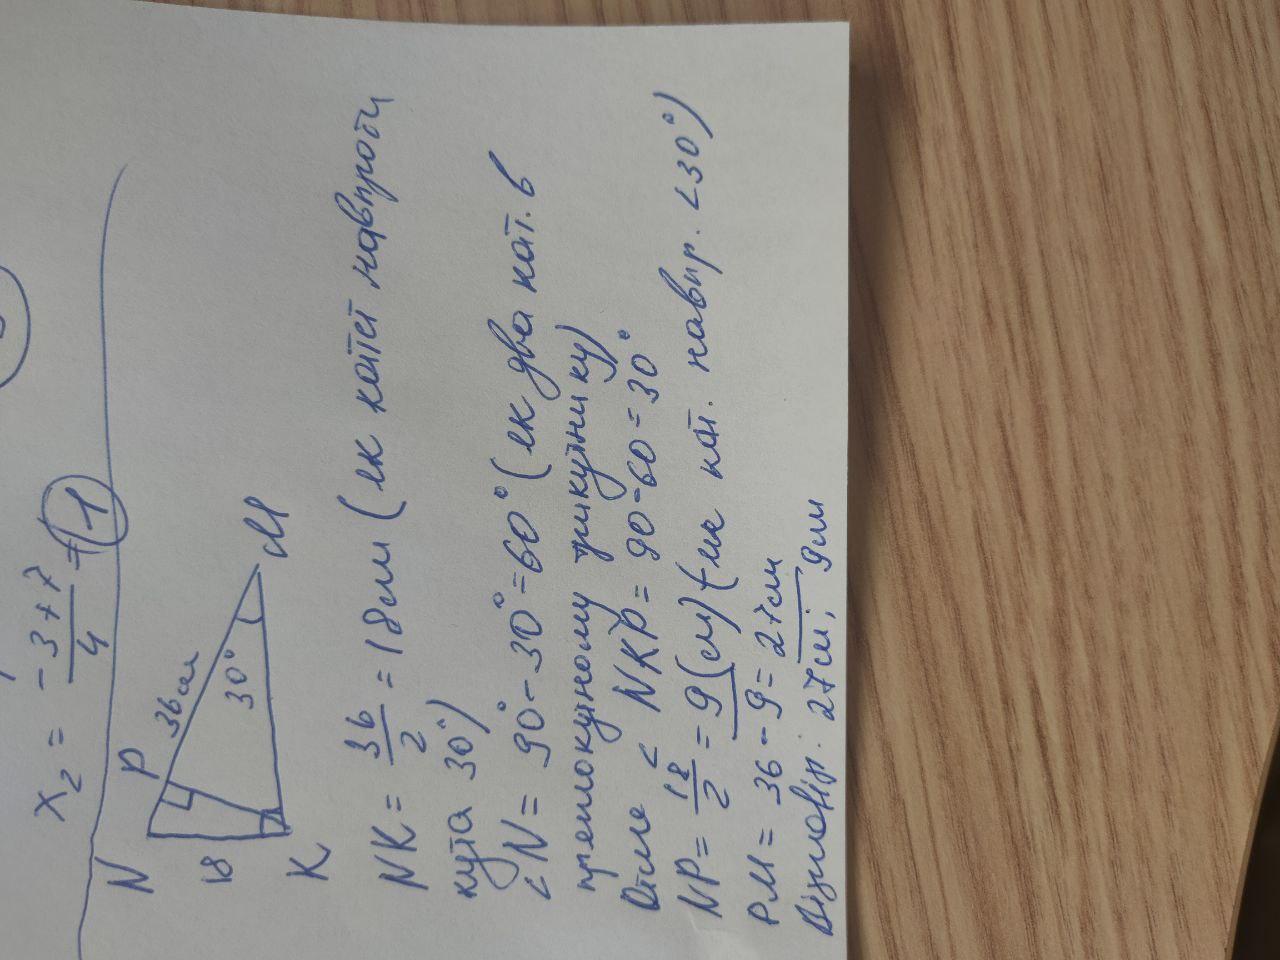 x₂ = (-3+7)/4 = 1
N
P
36см
30°
18
K
M
NK = 36/2 = 18см (як катет навпроти
кута 30°)
<N = 90° - 30° = 60° (як два кат. в
прямокутному трикутнику)
Отже < NKP = 90-60 = 30°
NP = 18/2 = 9 (см) (як кат. навпр. <30°)
PM = 36 - 9 = 27см
Відповідь: 27см; 9см